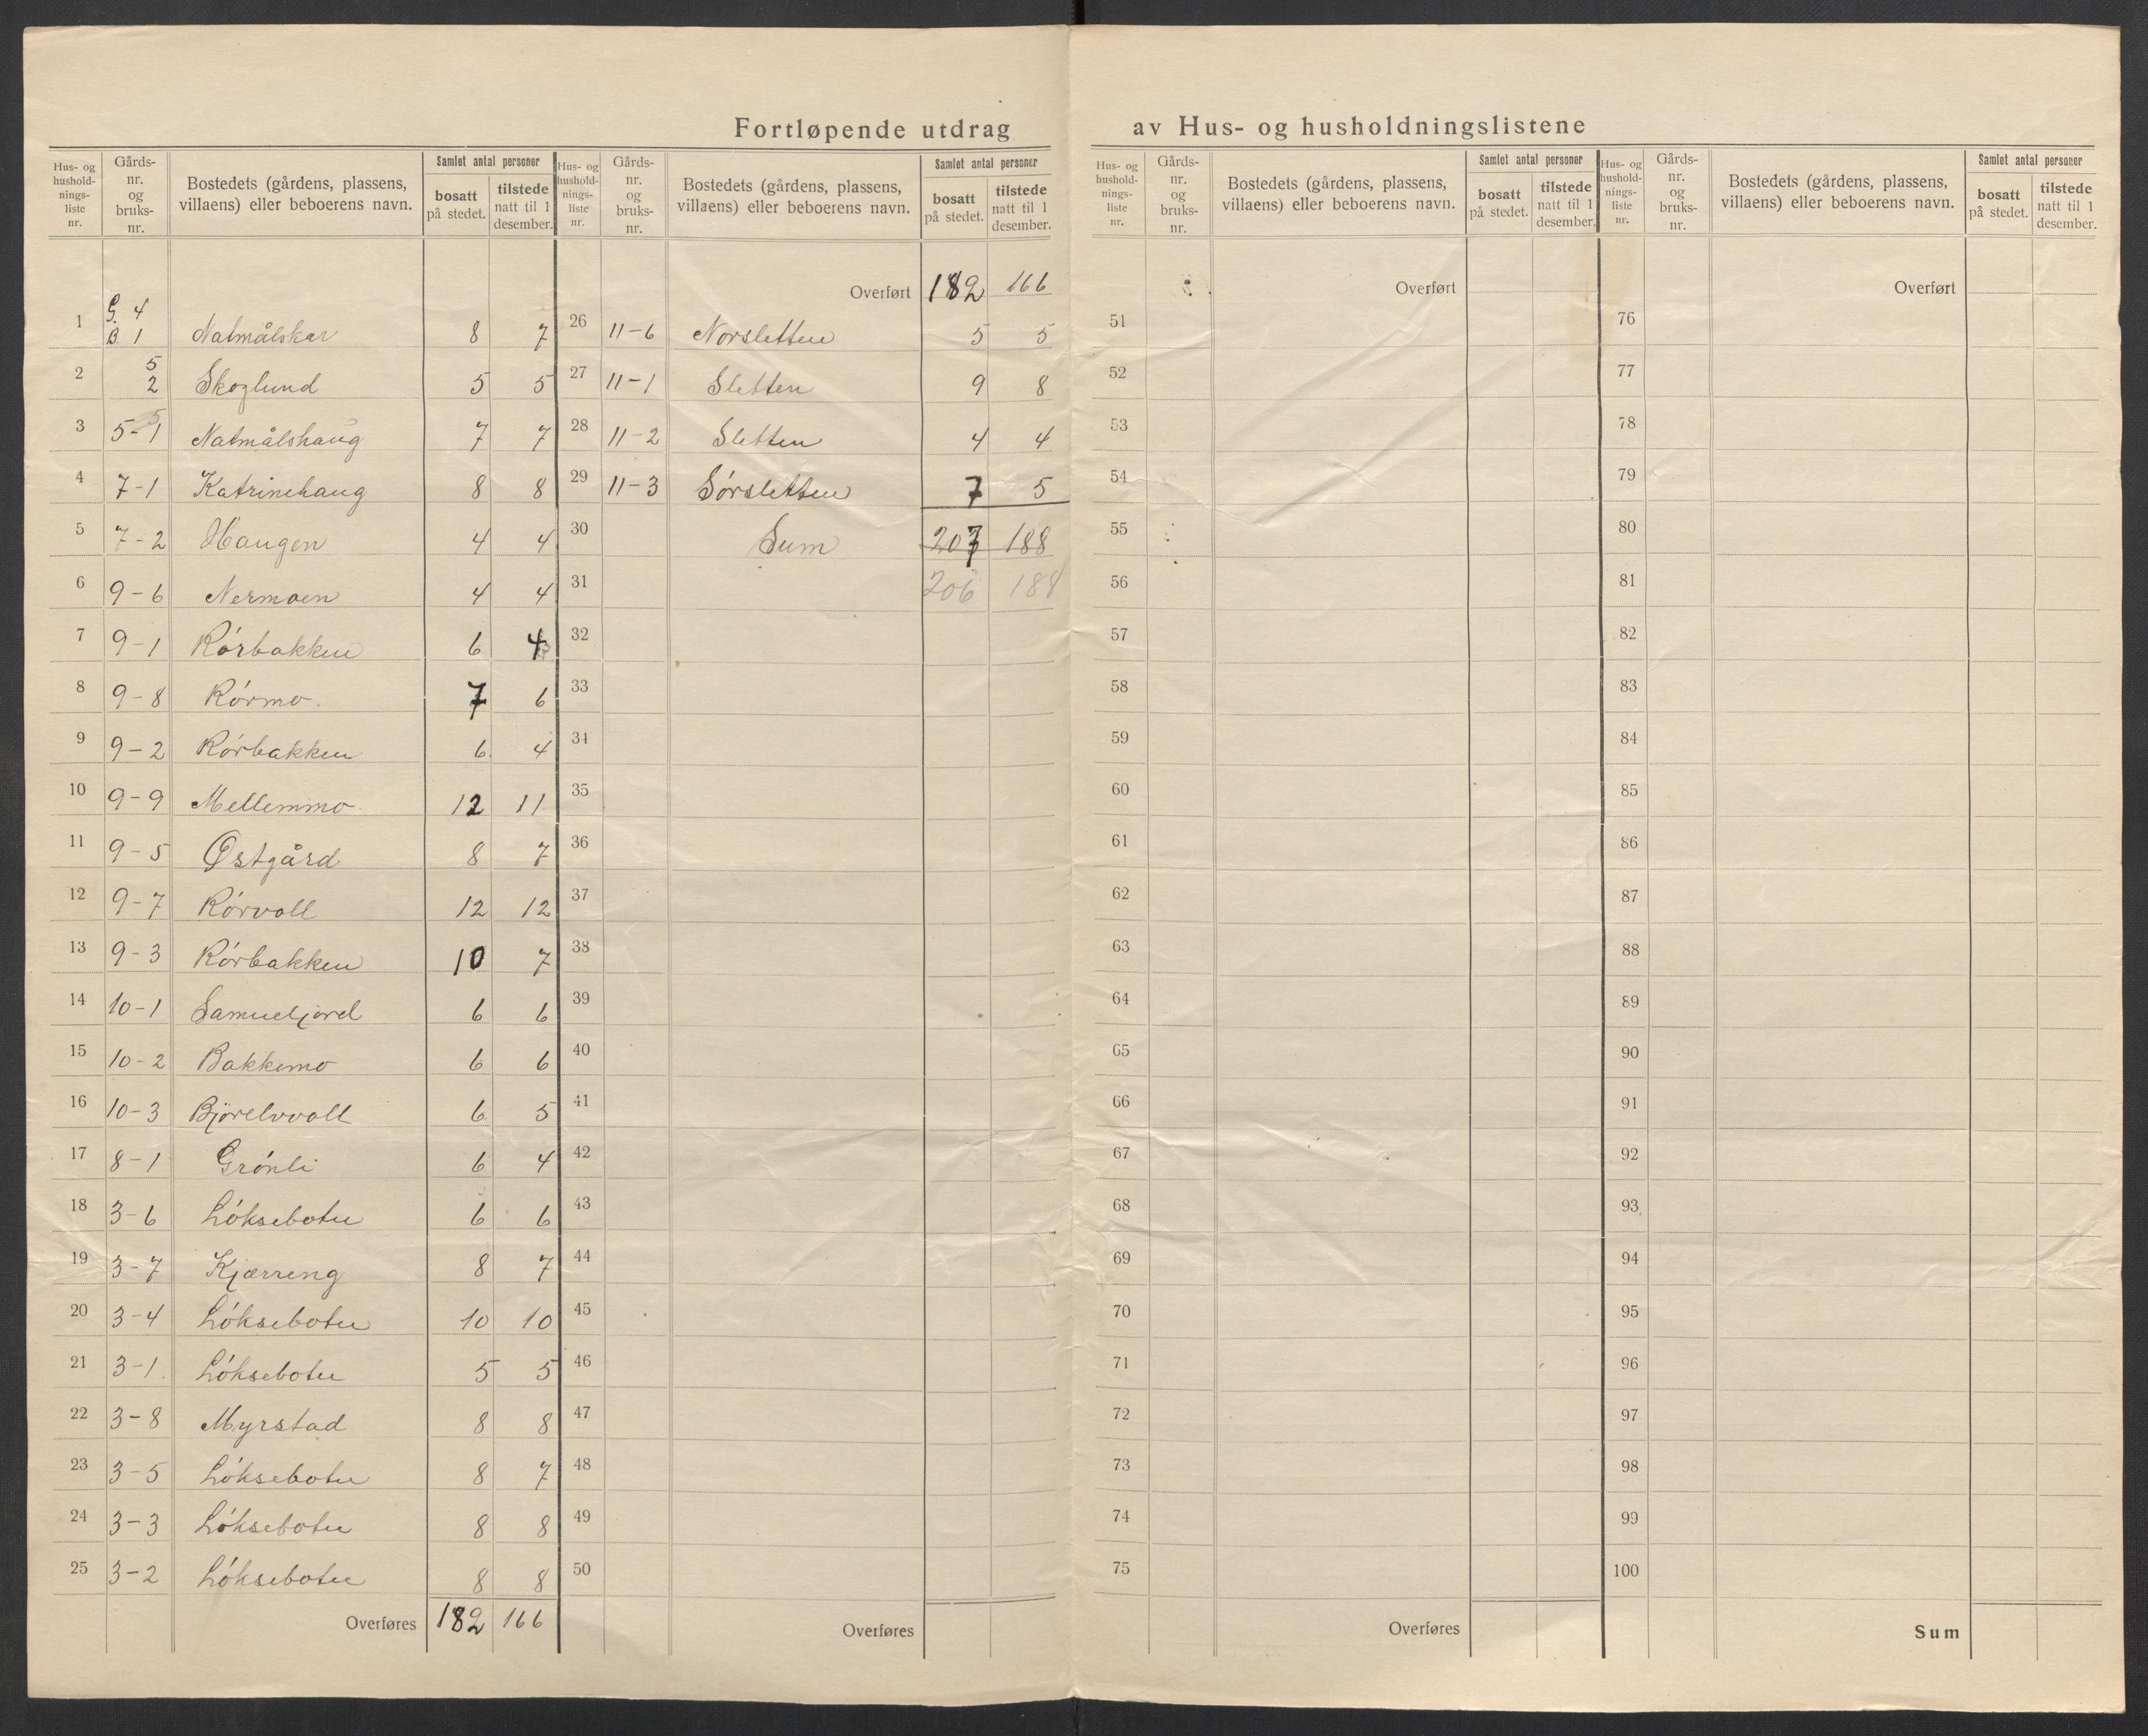 Fortløpende utdrag av Hus- og husholdningslistene
Hus- og husholdnings-liste nr. | Gårds-nr. og bruks-nr. | Bostedets (gårdens, plassens, villaens) eller beboerens navn. | Samlet antal personer | bosatt på stedet. | tilstede natt til 1 desember.
1 G. 4 B. 1 Natmålskar 8 7
2 5 2 Skoglund 5 5
3 5-1 Natmålshaug 7 7
4 7-1 Katrinehaug 8 8
5 7-2 Haugen 4 4
6 9-6 Nermoen 4 4
7 9-1 Rórbakken 6 4
8 9-8 Rórmo. 7 6
9 9-2 Rórbakken 6 4
10 9-9 Mellemmo 12 11
11 9-5 Østgård 8 7
12 9-7 Rórvoll 12 12
13 9-3 Rórbakken 10 7
14 10-1 Samueljord 6 6
15 10-2 Bakkemo 6 6
16 10-3 Bjórelvvoll 6 5
17 8-1 Grónli 6 4
18 3-6 Lóksebotn 6 6
19 3-7 Kjærreng 8 7
20 3-4 Lóksebotn 10 10
21 3-1 Lóksebotn 5 5
22 3-8 Myrstad 8 8
23 3-5 Lóksebotn 8 7
24 3-3 Lóksebotn 8 8
25 3-2 Lóksebotn 8 8
Overføres 182 166
Hus- og husholdnings-liste nr. | Gårds-nr. og bruks-nr. | Bostedets (gårdens, plassens, villaens) eller beboerens navn. | Samlet antal personer | bosatt på stedet. | tilstede natt til 1 desember.
Overført 182 166
26 11-6 Norsletten 5 5
27 11-1 Sletten 9 8
28 11-2 Sletten 4 4
29 11-3 Sórsletten 7 5
30 Sum 207 188
31 206 188
32
33
34
35
36
37
38
39
40
41
42
43
44
45
46
47
48
49
50
Overføres
Hus- og husholdnings-liste nr. | Gårds-nr. og bruks-nr. | Bostedets (gårdens, plassens, villaens) eller beboerens navn. | Samlet antal personer | bosatt på stedet. | tilstede natt til 1 desember.
Overført
51
52
53
54
55
56
57
58
59
60
61
62
63
64
65
66
67
68
69
70
71
72
73
74
75
Overføres
Hus- og husholdnings-liste nr. | Gårds-nr. og bruks-nr. | Bostedets (gårdens, plassens, villaens) eller beboerens navn. | Samlet antal personer | bosatt på stedet. | tilstede natt til 1 desember.
Overført
76
77
78
79
80
81
82
83
84
85
86
87
88
89
90
91
92
93
94
95
96
97
98
99
100
Sum